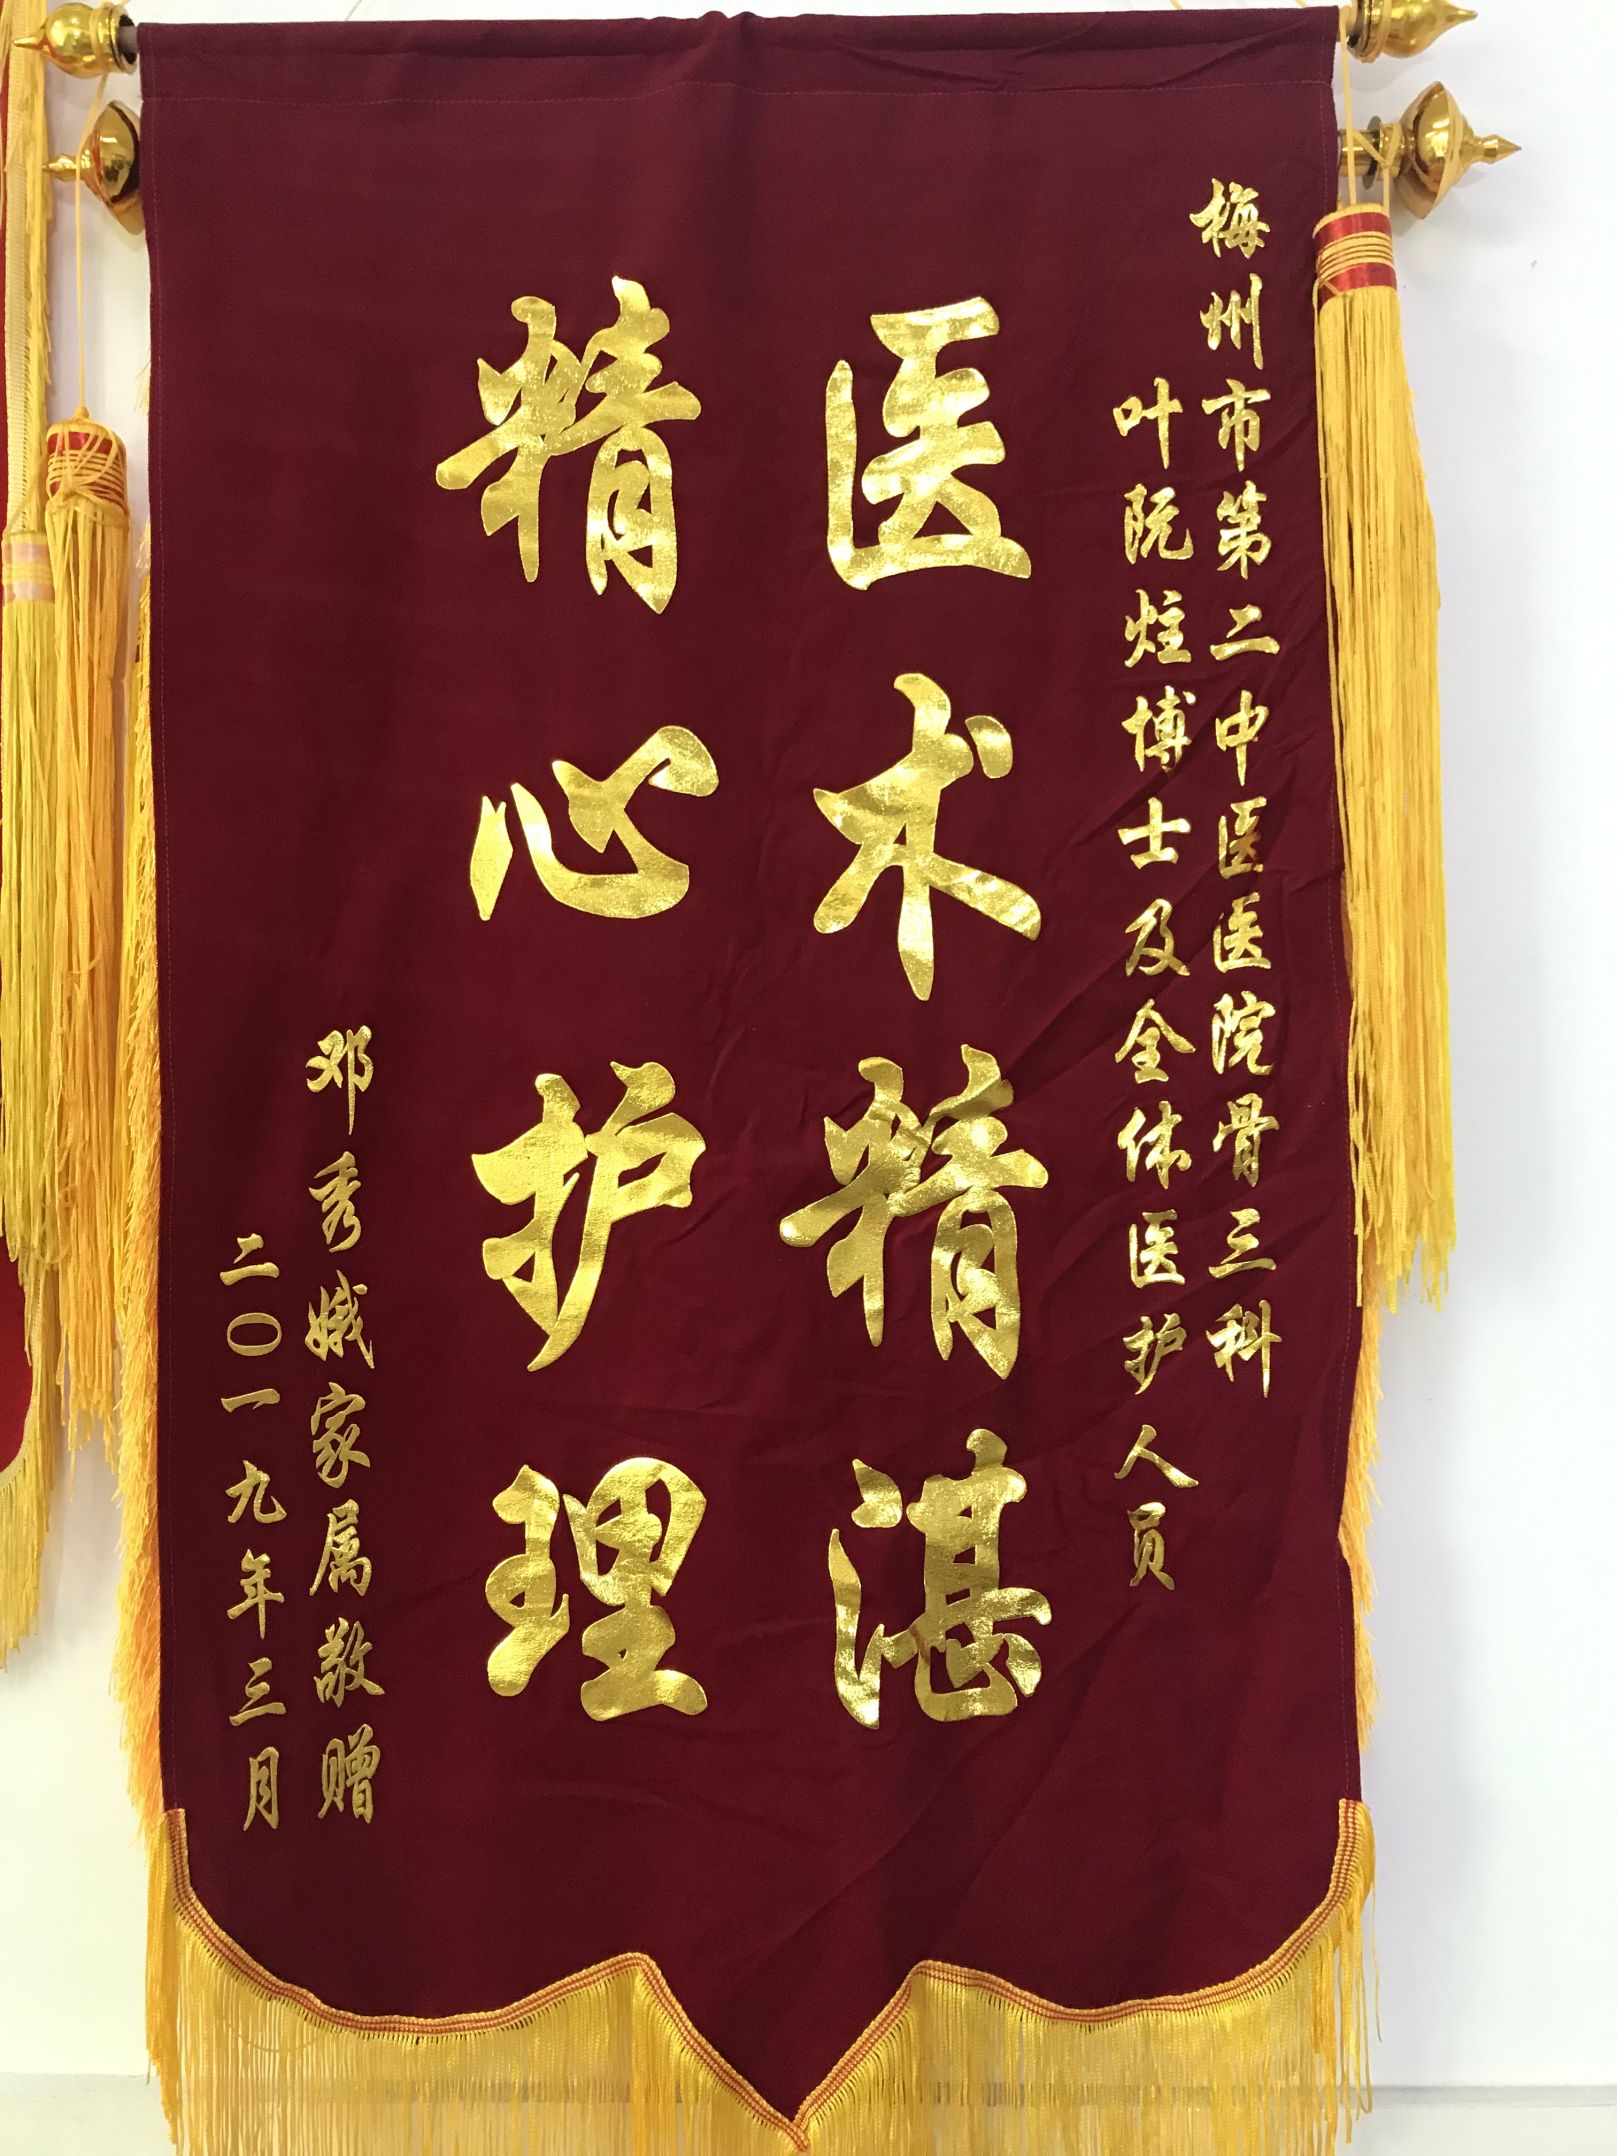 梅州市第二中医医院骨三科
叶阮炷博士及全体医护人员
医术精湛
精心护理
邓秀娥家属敬赠
二〇一九年三月